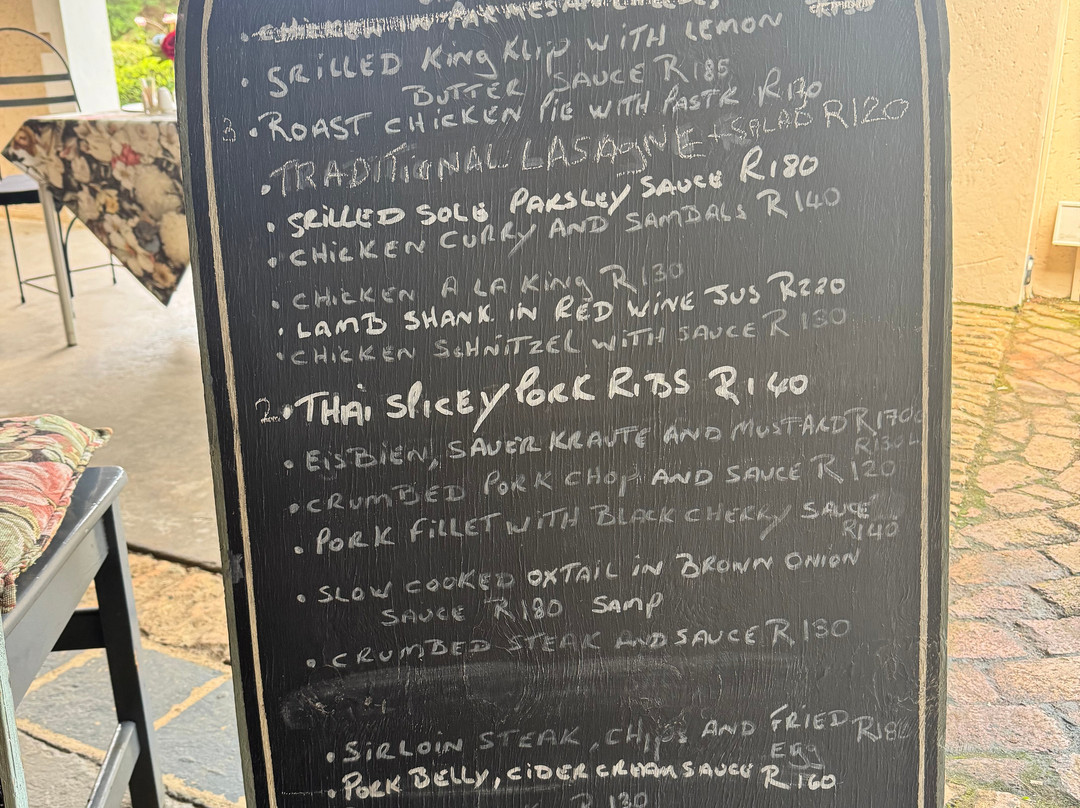 CHICKEN IN PARMESAN
• GRILLED KINGKLIP WITH LEMON
BUTTER SAUCE R185
3 • ROAST CHICKEN PIE WITH PASTR R130
• TRADITIONAL LASAGNE + SALAD R120
• GRILLED SOLE PARSLEY SAUCE R180
• CHICKEN CURRY AND SAMBALS R140
• CHICKEN A LA KING R130
• LAMB SHANK IN RED WINE JUS R220
• CHICKEN SCHNITZEL WITH SAUCE R130
2 • THAI SPICEY PORK RIBS R140
• EISBIEN, SAUER KRAUTE AND MUSTARD R170
R130
• CRUMBED PORK CHOP AND SAUCE R120
• PORK FILLET WITH BLACK CHERRY SAUCE
R140
• SLOW COOKED OXTAIL IN BROWN ONION
SAUCE R180 SAMP
• CRUMBED STEAK AND SAUCE R130
• SIRLOIN STEAK, CHIPS AND FRIED R180
EGG
• PORK BELLY, CIDER CREAM SAUCE R160
R130